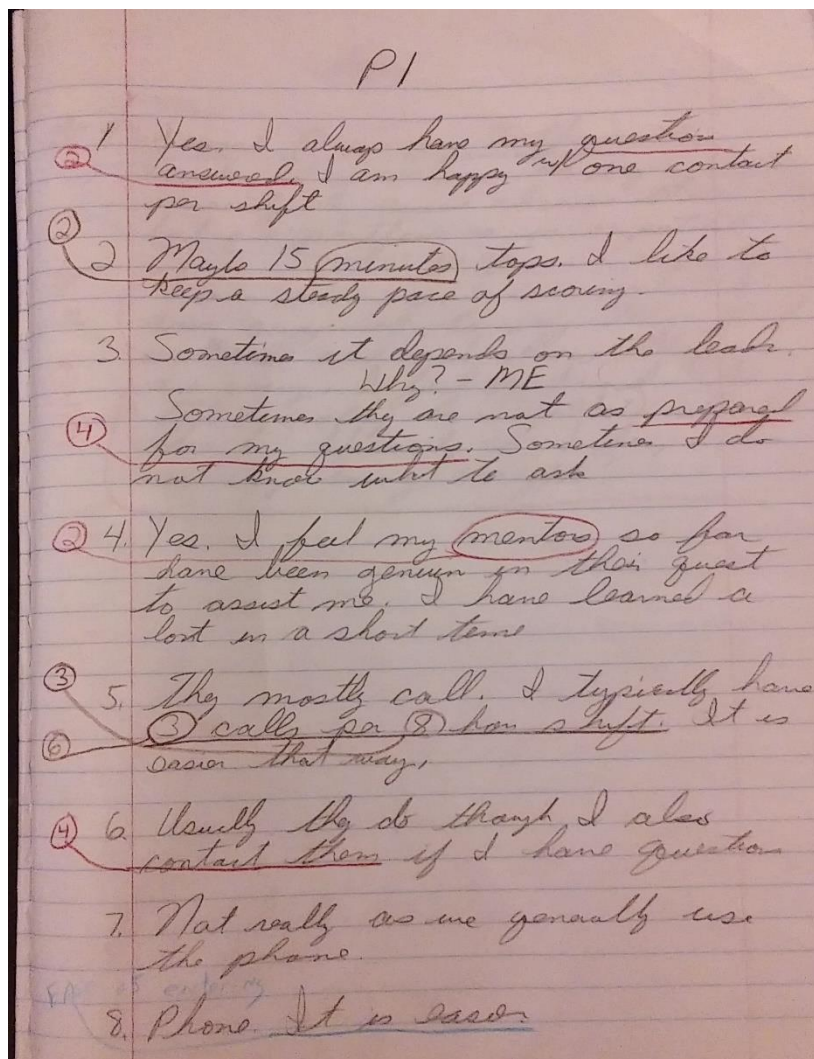 P1
1 Yes. I always have my question
② answered. I am happy w/ one contact
per shift
②
2 Maybe 15 minutes tops. I like to
keep a steady pace of scoring.
3. Sometimes it depends on the leader.
Why? - ME
Sometimes they are not as prepared
④ for my questions. Sometimes I do
not know what to ask
② 4. Yes. I feel my mentors so far
have been genuin in their quest
to assist me. I have learned a
lost in a short time
③ 5. They mostly call. I typically have
⑥ 3 calls per 8 hou shift. It is
easier that way.
④ 6. Usually they do though I also
contact them if I have question
7. Not really as we generally use
the phone.
8. Phone. It is easier.